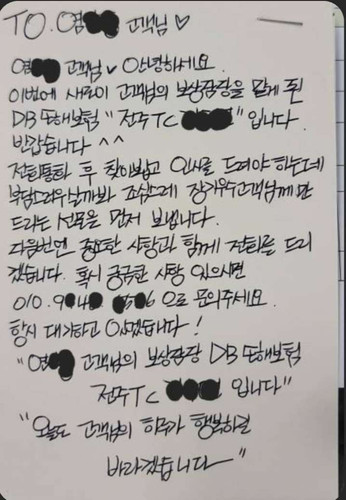 TO. 염 고객님 ♡
염 고객님 ♡ 안녕하세요.
이번에 새로이 고객님의 보상담당을 맡게 된
DB손해보험 "전주TC " 입니다.
반갑습니다 ^^
전화통화 후 찾아뵙고 인사를 드려야 하는데
부담스러우실까봐 조심스레 장기우수고객님께만
드리는 선물을 먼저 보냅니다.
다음번엔 중요한 사항과 함께 전화를 드리
겠습니다. 혹시 궁금한 사항 있으시면
010. 으로 문의주세요.
항시 대기하고 있겠습니다!
"염 고객님의 보상담당 DB손해보험
전주TC 입니다"
"오늘도 고객님의 하루가 행복하길
바라겠습니다"